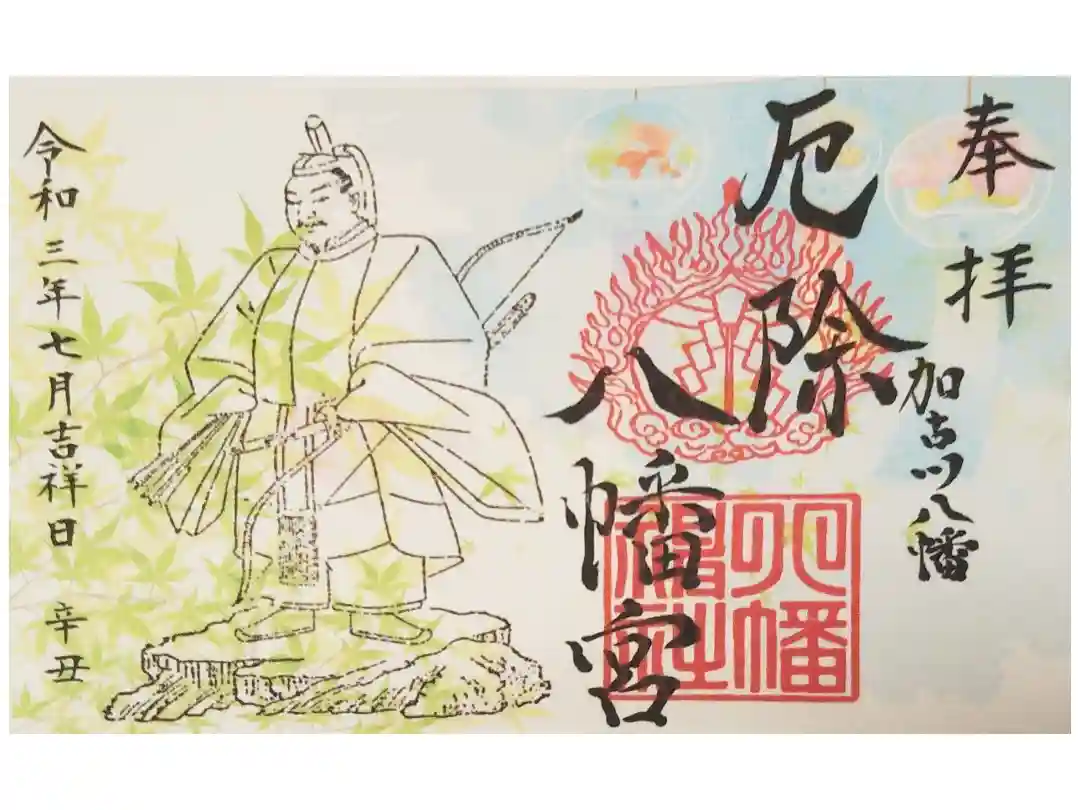 奉拝
加古川八幡
厄除
八幡宮
八幡神社
令和三年七月吉祥日 辛丑